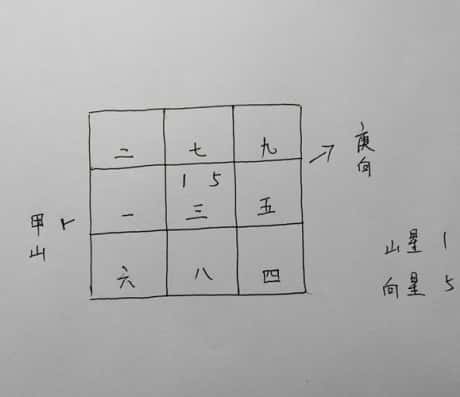 二 七 九
庚向
1 5
一 三 五
甲山
山星 1
六 八 四
向星 5